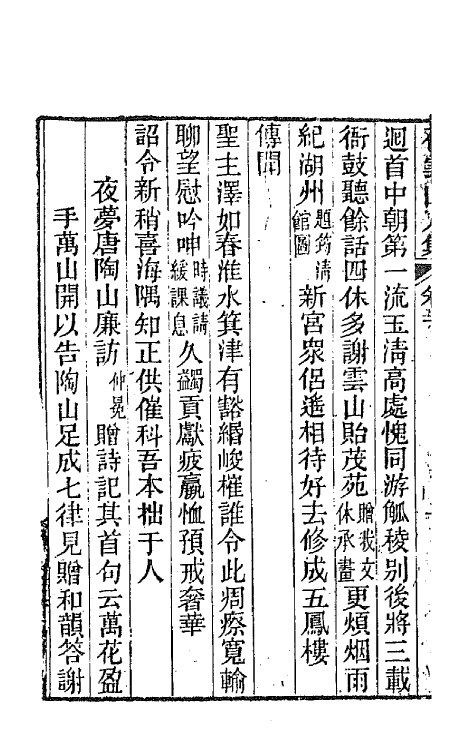 迴首中朝第一流玉清高處愧同游觚稜别後將三載
衙鼓聽餘話四休多謝雲山貽茂苑贈我文休承畫更煩烟雨
紀湖州題筠清館圖新宮衆侶遙相待好去修成五鳳樓
傳聞
聖主澤如春淮水箕津有豁緡峻榷誰令此痌瘝寬輸
聊望慰吟呻時議請緩課息久蠲貢獻疲羸恤預戒奢華
詔令新稍喜海隅知正供催科吾本拙于人
夜夢唐陶山廉訪仲冕贈詩記其首句云萬花盈
手萬山開以告陶山足成七律見贈和韻答謝